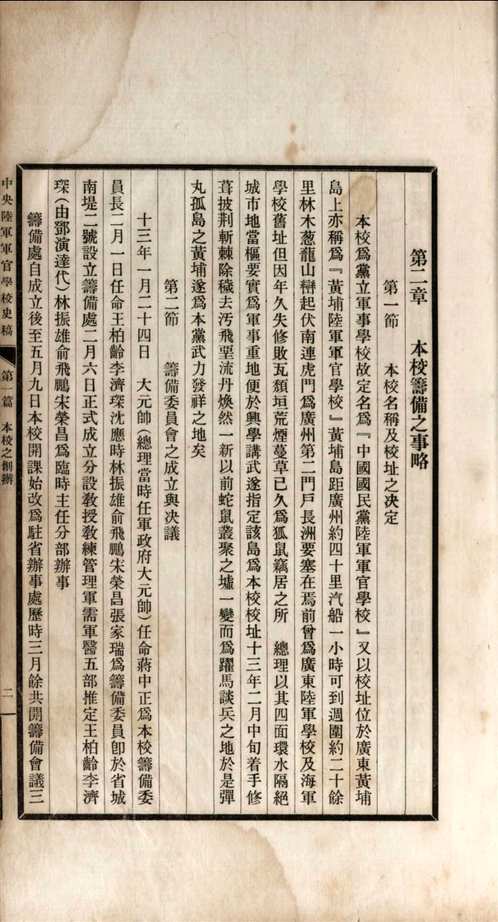 第二章　本校籌備之事略
第一節　本校名稱及校址之决定
本校爲黨立軍事學校故定名爲『中國國民黨陸軍軍官學校』又以校址位於廣東黃埔
島上亦稱爲『黃埔陸軍軍官學校』黃埔島距廣州約四十里汽船一小時可到週圍約二十餘
里林木葱龍山巒起伏南連虎門爲廣州第二門戶長洲要塞在焉前曾爲廣東陸軍學校及海軍
學校舊址但因年久失修敗瓦頽垣荒煙蔓草已久爲狐鼠竊居之所　總理以其四面環水隔絕
城市地當樞要實爲軍事重地便於興學講武遂指定該島爲本校校址十三年二月中旬着手修
葺披荆斬棘除穢去汚飛堊流丹煥然一新以前蛇鼠叢聚之墟一變而爲躍馬談兵之地於是彈
丸孤島之黃埔遂爲本黨武力發祥之地矣
第二節　籌備委員會之成立與决議
十三年一月二十四日　大元帥（總理當時任軍政府大元帥）任命蔣中正爲本校籌備委
員長二月一日任命王柏齡李濟琛沈應時林振雄俞飛鵬宋榮昌張家瑞爲籌備委員卽於省城
南堤二號設立籌備處二月六日正式成立分設敎授敎練管理軍需軍醫五部推定王柏齡李濟
琛（由鄧演達代）林振雄俞飛鵬宋榮昌爲臨時主任分部辦事
籌備處自成立後至五月九日本校開課始改爲駐省辦事處歷時三月餘共開籌備會議三
中央陸軍軍官學校史稿　第一篇　本校之創辦　二